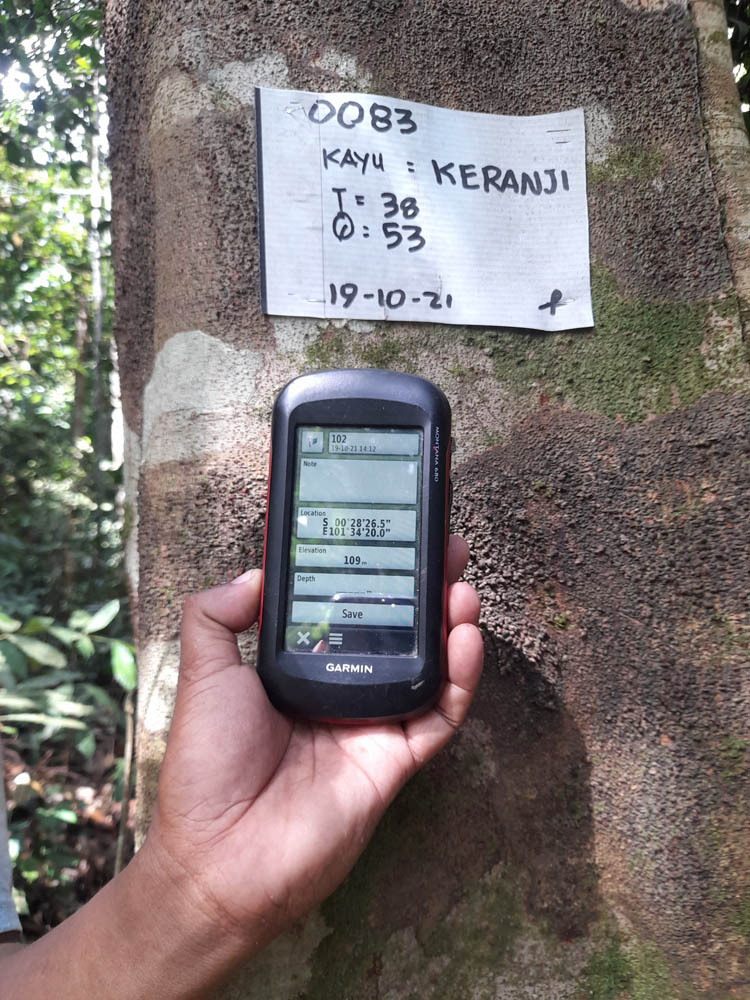 0083
KAYU = KERANJI
T = 38
Ø : 53
19-10-21
MONTANA 680
102
19-10-21 14:12
Note
Location
S 00°28'26.5"
E101°34'20.0"
Elevation
109 m
Depth
Save
GARMIN